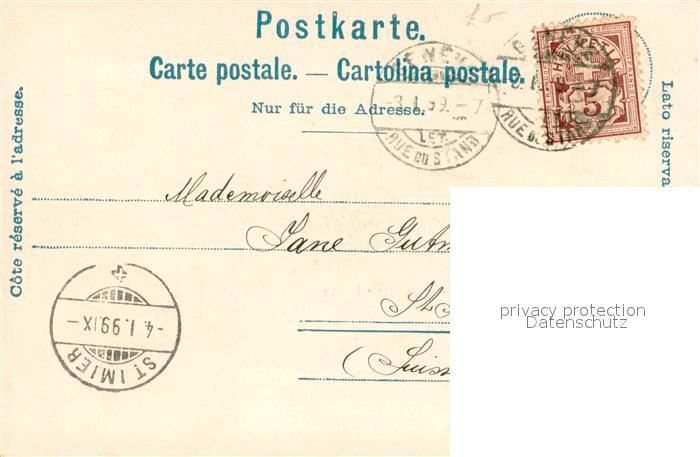 Postkarte.
Carte postale. — Cartolina postale.
Nur für die Adresse.
Côte réservé à l'adresse.
Lato riserva
GENÈV
-3.I.99.-7
LET.
RUE DU STAND
HELVETIA
5
RUE DU ST
Mademoiselle
Jane Gutm
St.
(Suiss
-4.I.99.IX-
ST IMIER
privacy protection
Datenschutz